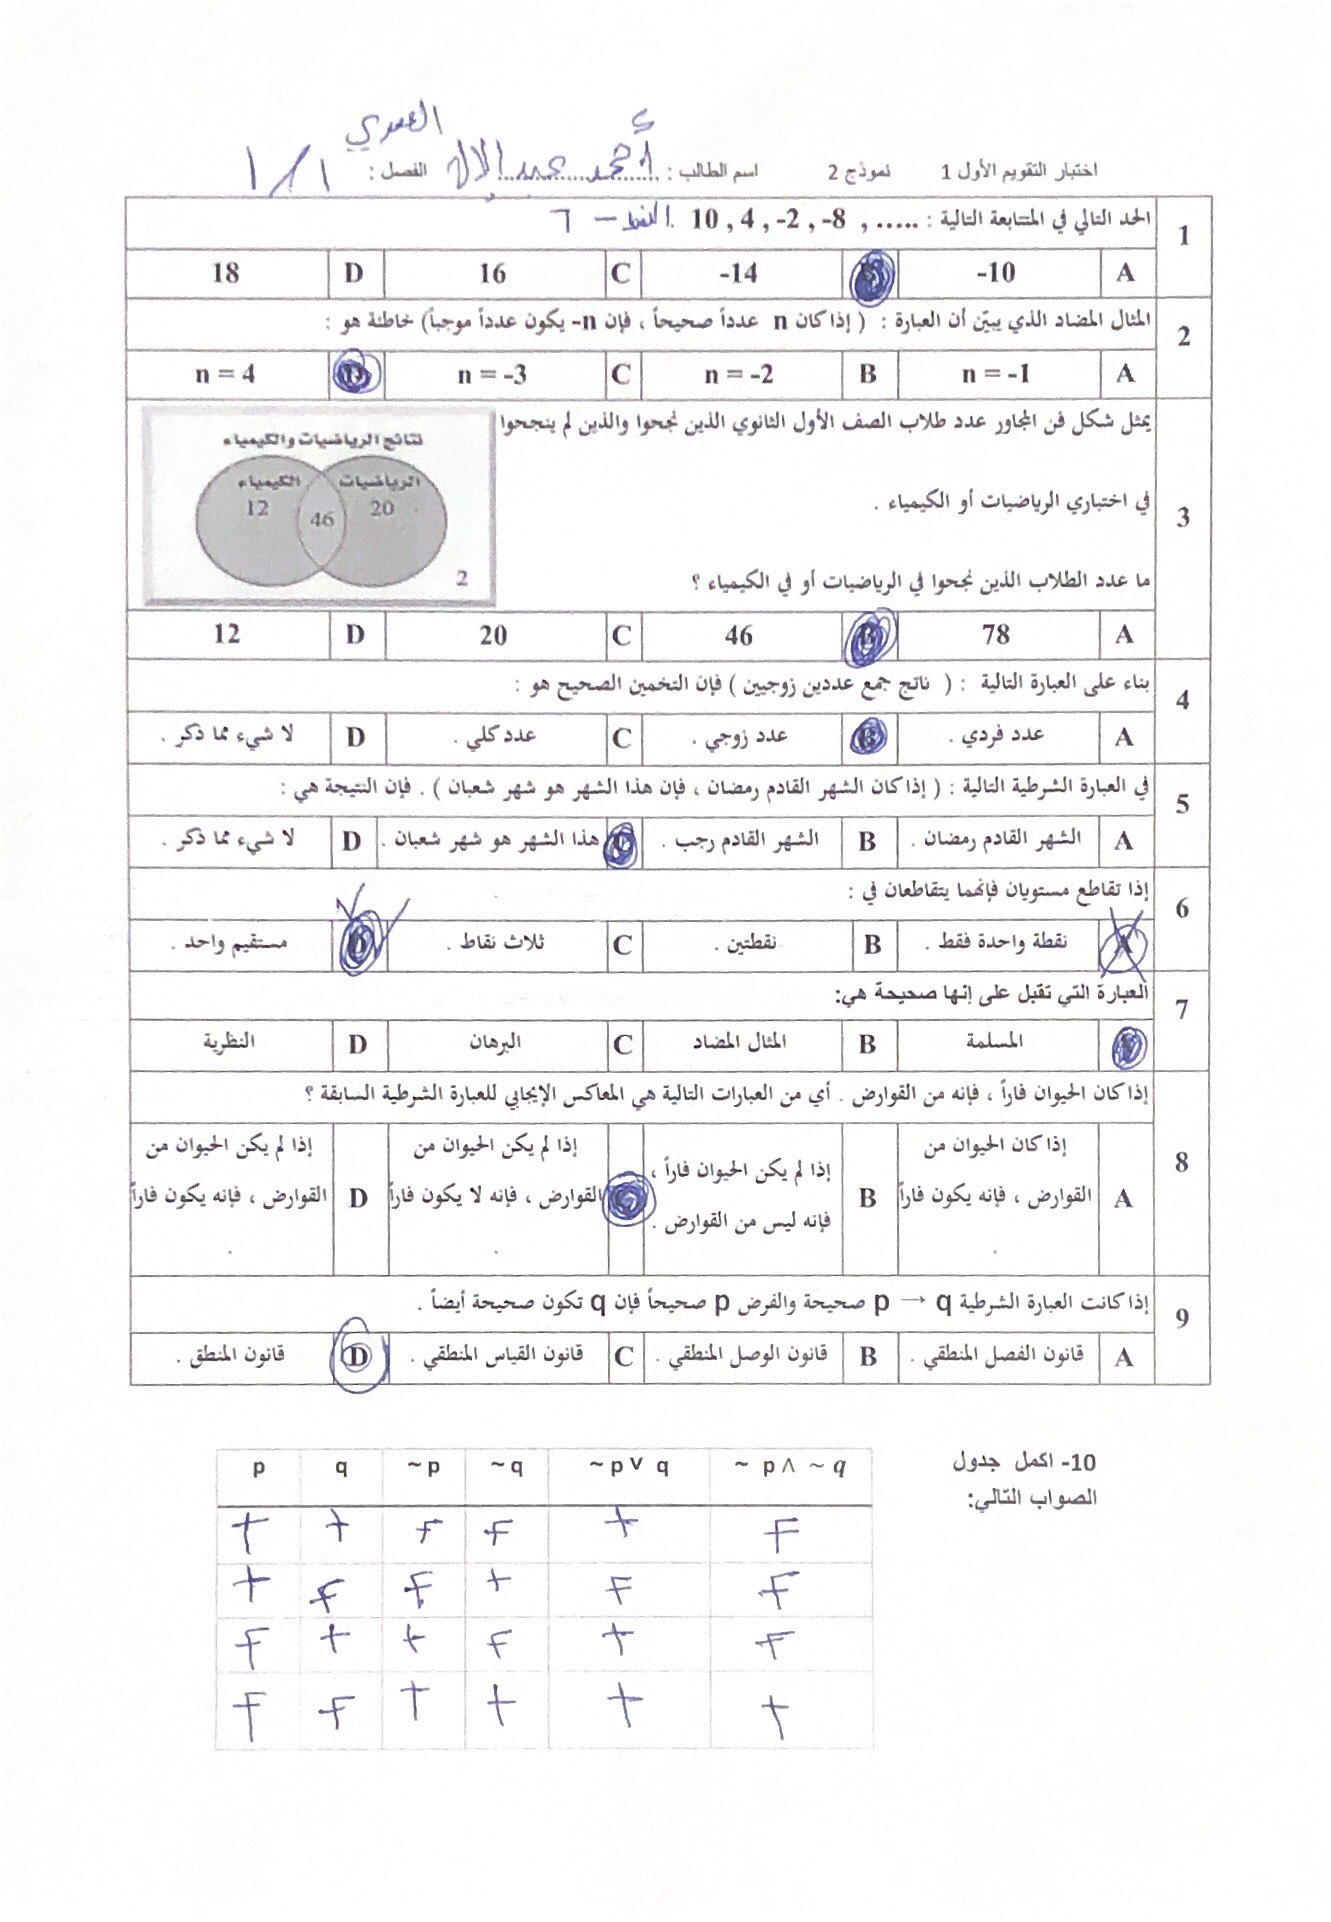 العمري
اختبار التقويم الأول 1 نموذج 2 اسم الطالب : أحمد عبد الاله الفصل : 1/1
1 الحد التالي في المتتابعة التالية : ..... , 10 , 4 , -2 , -8 النمط - ٦
A -10 B -14 C 16 D 18
2 المثال المضاد الذي يبيّن أن العبارة : ( إذا كان n عدداً صحيحاً ، فإن n- يكون عدداً موجباً) خاطئة هو :
A n = -1 B n = -2 C n = -3 D n = 4
يمثل شكل فن المجاور عدد طلاب الصف الأول الثانوي الذين نجحوا والذين لم ينجحوا
3 في اختباري الرياضيات أو الكيمياء .
ما عدد الطلاب الذين نجحوا في الرياضيات أو في الكيمياء ؟
نتائج الرياضيات والكيمياء
الرياضيات الكيمياء
20 46 12
2
A 78 B 46 C 20 D 12
4 بناء على العبارة التالية : ( ناتج جمع عددين زوجيين ) فإن التخمين الصحيح هو :
A عدد فردي . B عدد زوجي . C عدد كلي . D لا شيء مما ذكر .
5 في العبارة الشرطية التالية : ( إذا كان الشهر القادم رمضان ، فإن هذا الشهر هو شهر شعبان ) . فإن النتيجة هي :
A الشهر القادم رمضان . B الشهر القادم رجب . C هذا الشهر هو شهر شعبان . D لا شيء مما ذكر .
6 إذا تقاطع مستويان فإنهما يتقاطعان في :
A نقطة واحدة فقط . B نقطتين . C ثلاث نقاط . D مستقيم واحد .
7 العبارة التي تقبل على إنها صحيحة هي:
A المسلمة B المثال المضاد C البرهان D النظرية
8 إذا كان الحيوان فاراً ، فإنه من القوارض . أي من العبارات التالية هي المعاكس الإيجابي للعبارة الشرطية السابقة ؟
A إذا كان الحيوان من
القوارض ، فإنه يكون فاراً
.
B إذا لم يكن الحيوان فاراً ،
فإنه ليس من القوارض .
C إذا لم يكن الحيوان من
القوارض ، فإنه لا يكون فاراً
.
D إذا لم يكن الحيوان من
القوارض ، فإنه يكون فاراً
.
9 إذا كانت العبارة الشرطية p → q صحيحة والفرض p صحيحاً فإن q تكون صحيحة أيضاً .
A قانون الفصل المنطقي . B قانون الوصل المنطقي . C قانون القياس المنطقي . D قانون المنطق .
10- اكمل جدول
الصواب التالي:
p q ~p ~q ~p ∨ q ~ p ∧ ~ q
T T F F T F
T F F T F F
F T T F T F
F F T T T T